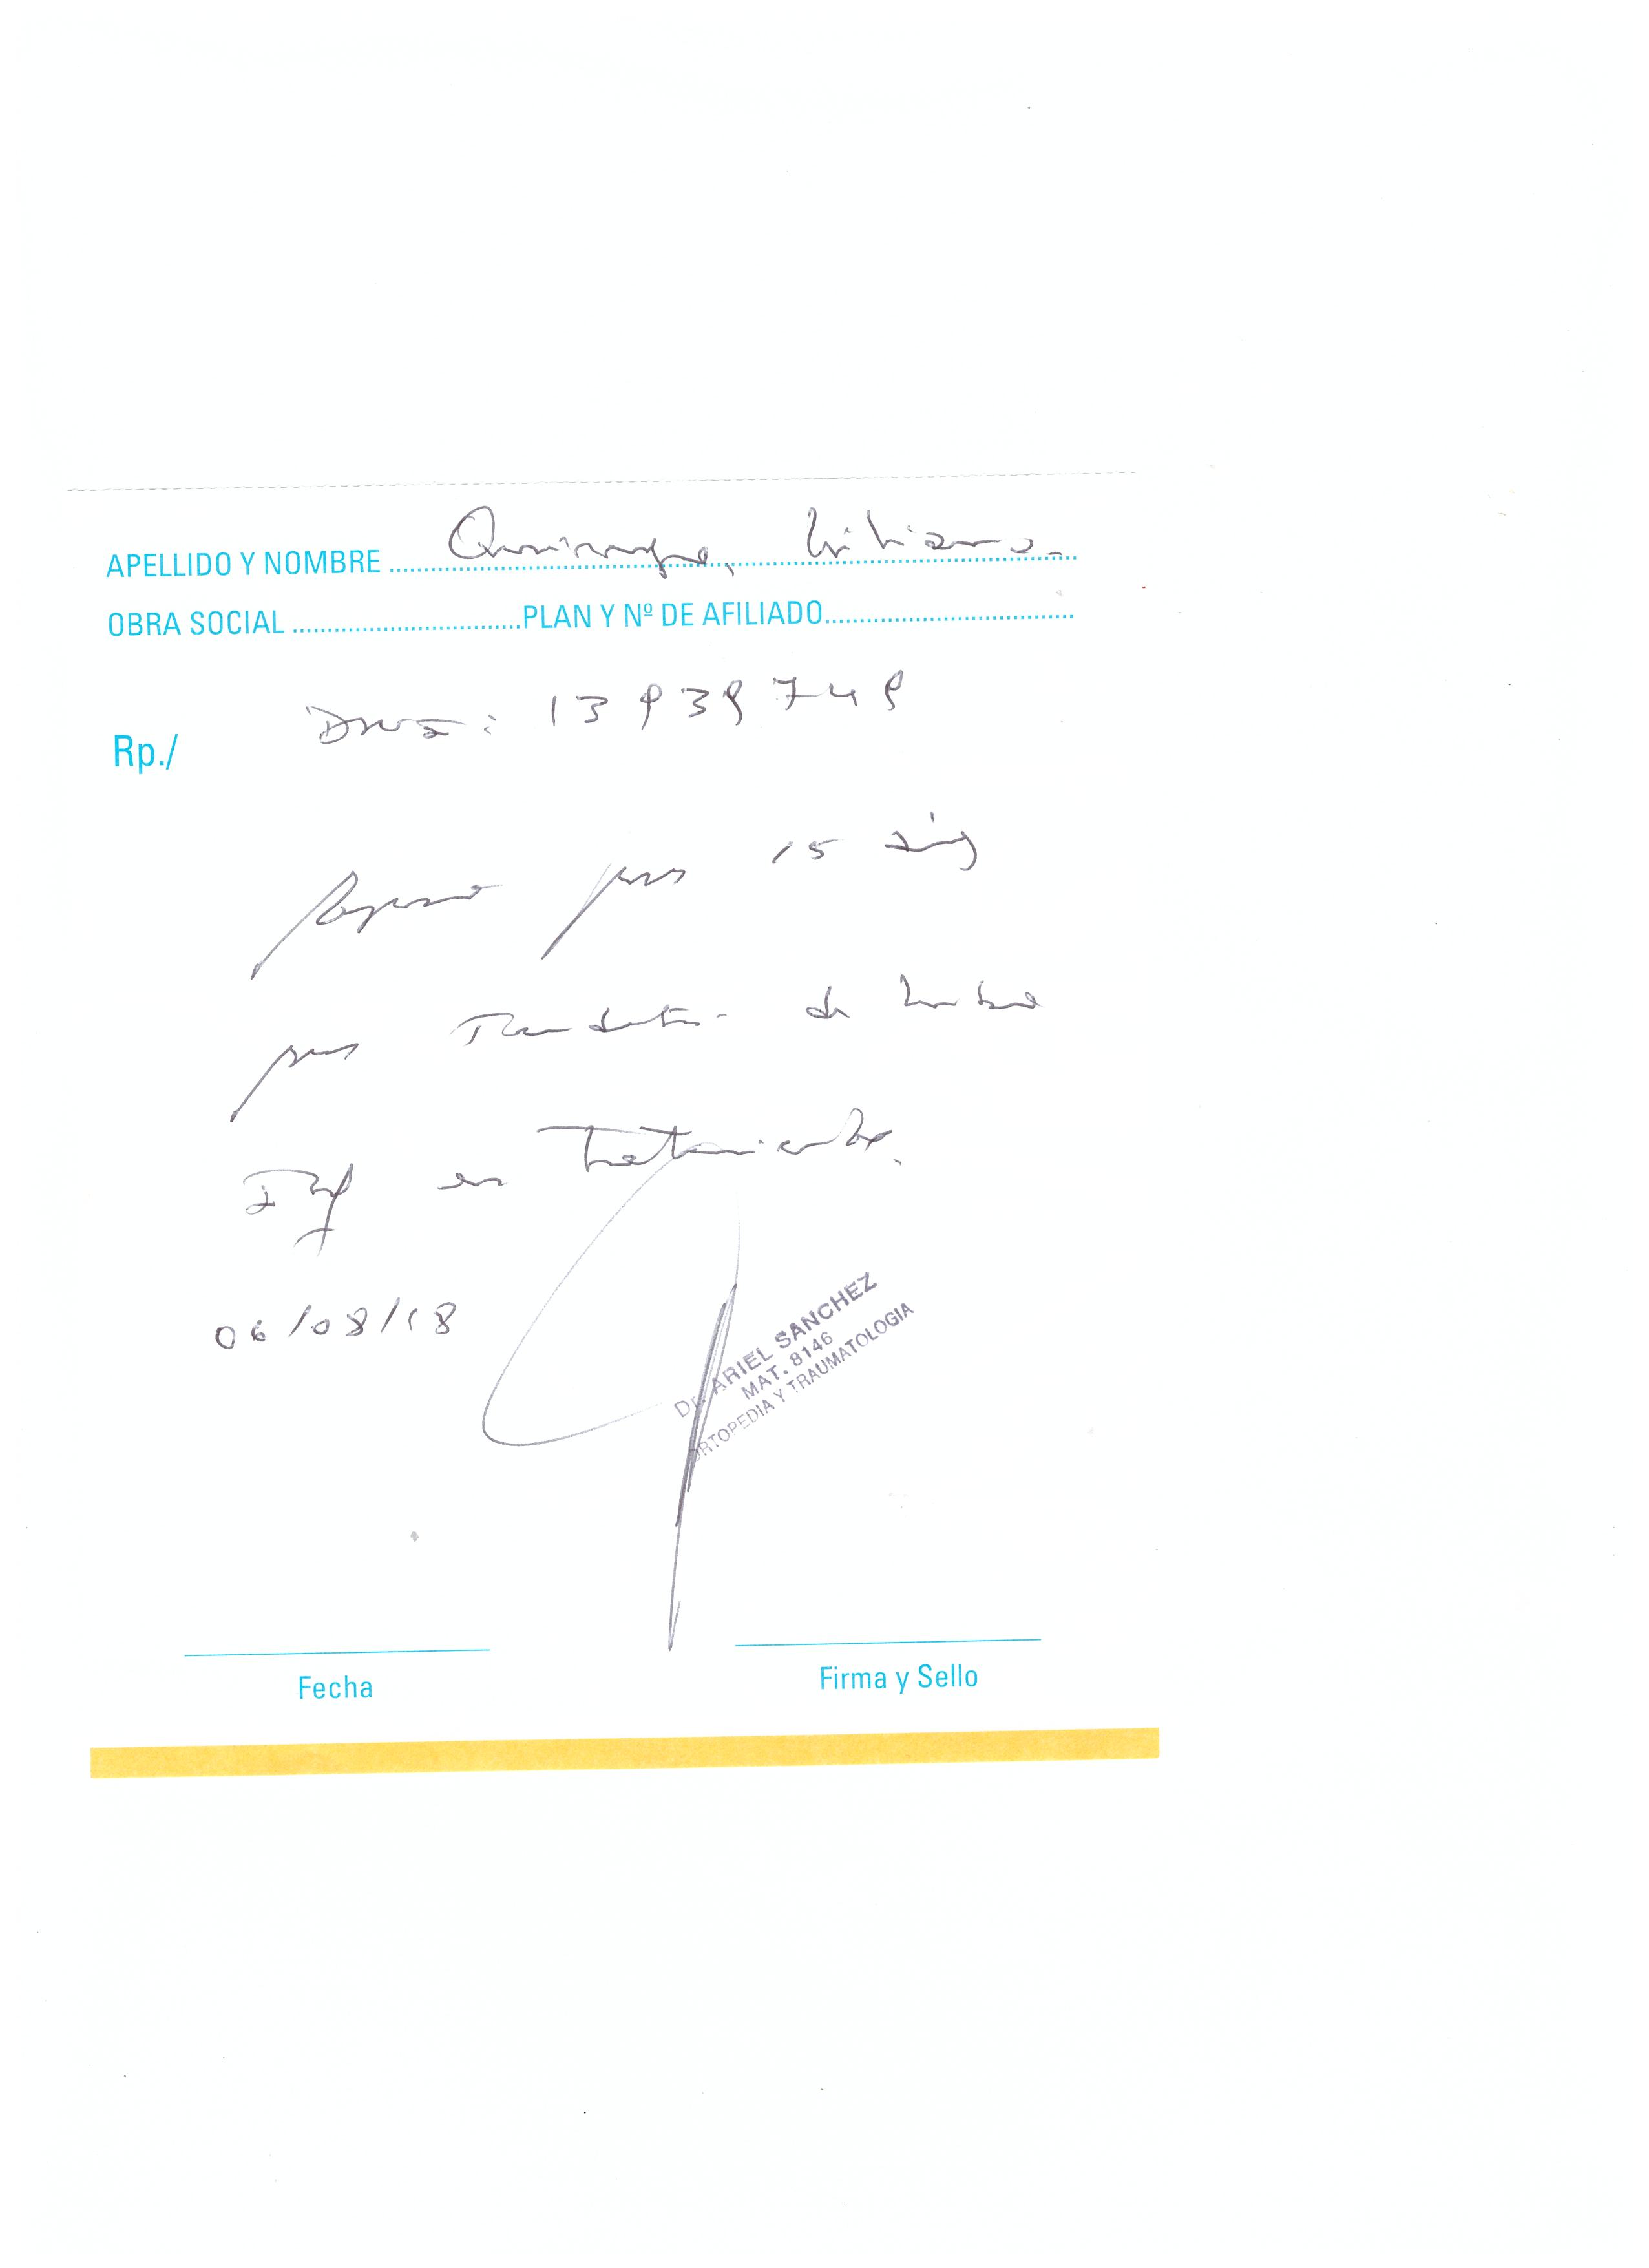 APELLIDO Y NOMBRE Liliana.
OBRA SOCIAL PLAN Y Nº DE AFILIADO
DNI: 13939749
Rp./
Reposo por 15 días
por de
en tratamiento.
06/08/18
Dr. ARIEL SANCHEZ
MAT. 8146
ORTOPEDIA Y TRAUMATOLOGIA
Fecha Firma y Sello